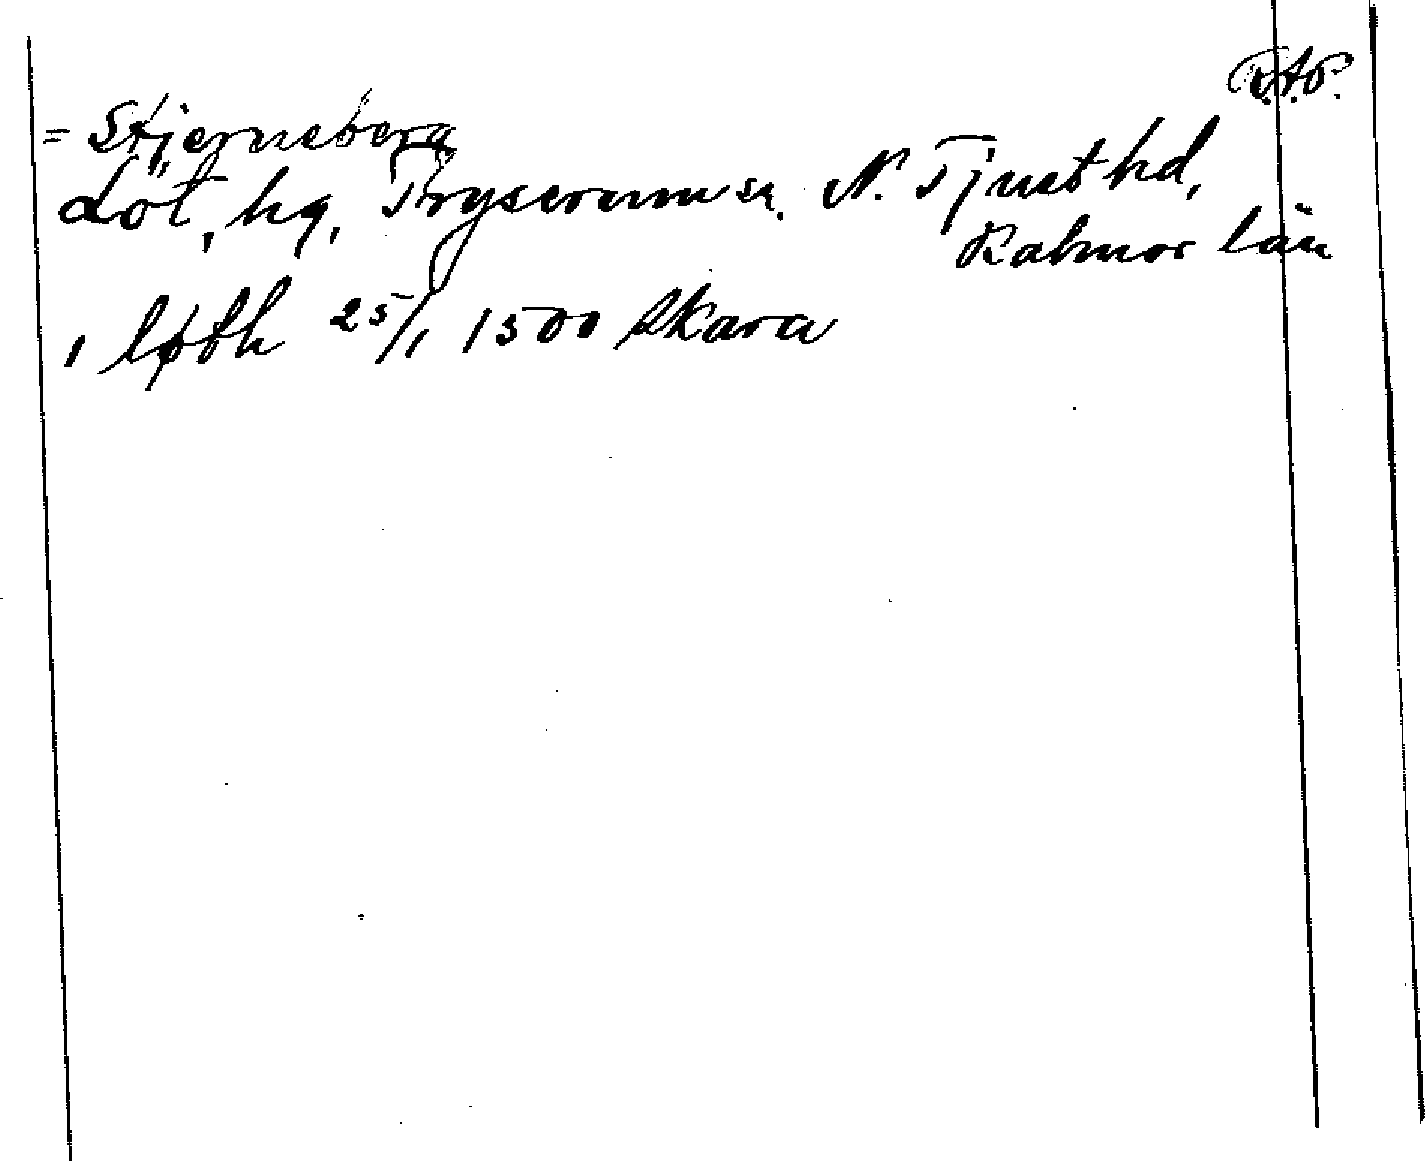 R.A.P.
= Stjerneberg
Löt, hg, Tryserum sn. N. Tjust hd,
Kalmar län
, løth 25/1 1500 Skara